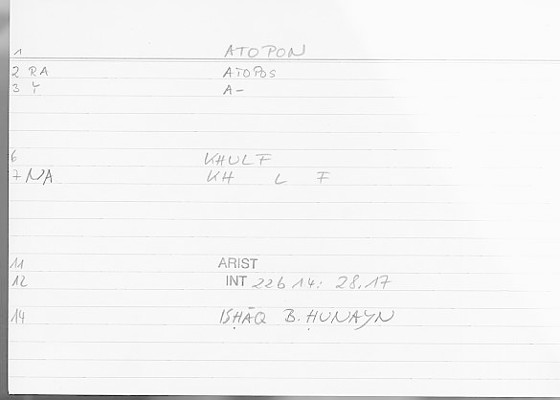 1 ATOPON
2 RA ATOPOS
3 Y A-
6 KHULF
7 NA KH L F
11 ARIST
12 INT 22b 14: 28.17
14 ISḤĀQ B. ḤUNAYN